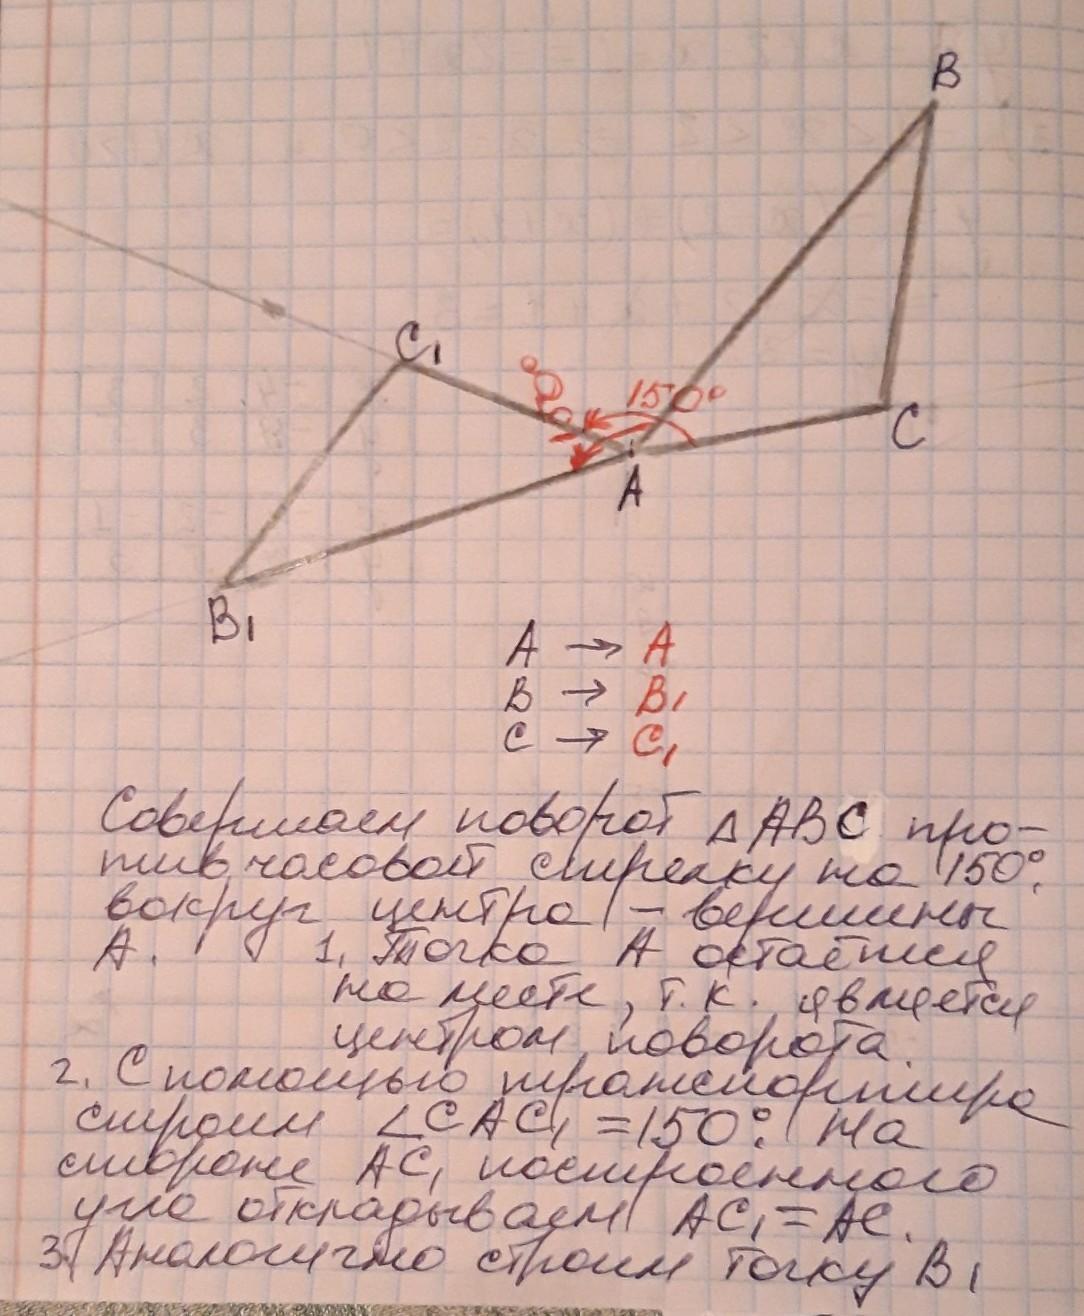 B
C₁
150°
150°
C
A
B₁
A → A
B → B₁
C → C₁
Совершаем поворот △ABC про-
тив часовой стрелку на 150°
вокруг центра – вершины
A. 1. Точка A остаётся
на месте, т.к. является
центром поворота.
2. С помощью транспортира
строим ∠CAC₁ = 150°. На
стороне AC₁ построенного
угла откладываем AC₁ = AC.
3. Аналогично строим точку B₁